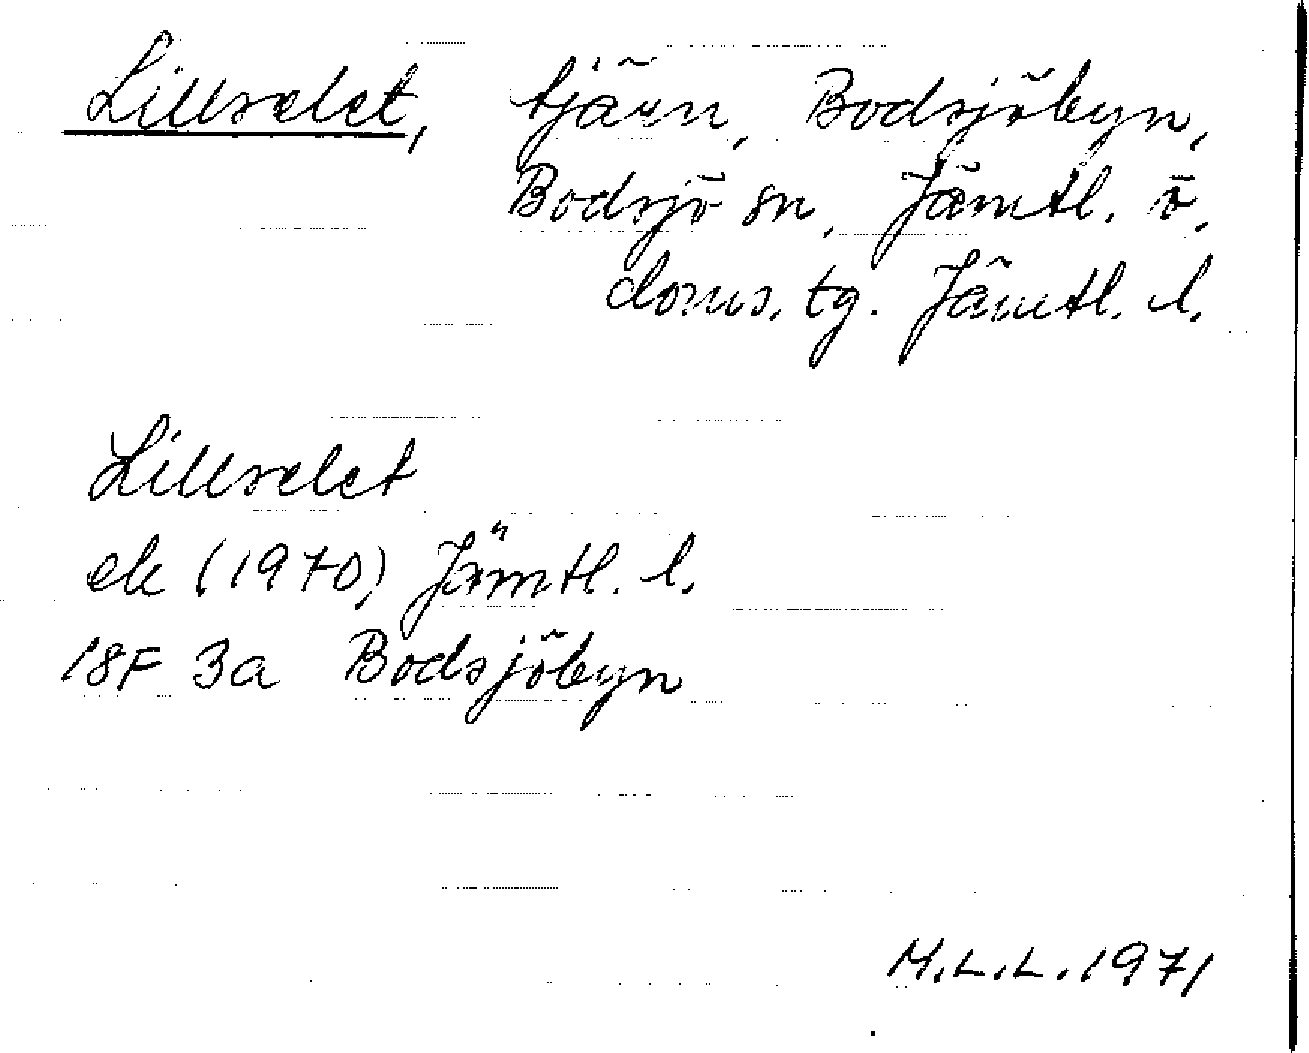 Lillselet, tjärn, Bodsjöbyn,
Bodsjö sn, Jämtl. ö.
doms. tg. Jämtl. l.
Lillselet
ek (1970) Jämtl. l.
18F 3a Bodsjöbyn
M.L.L. 1971